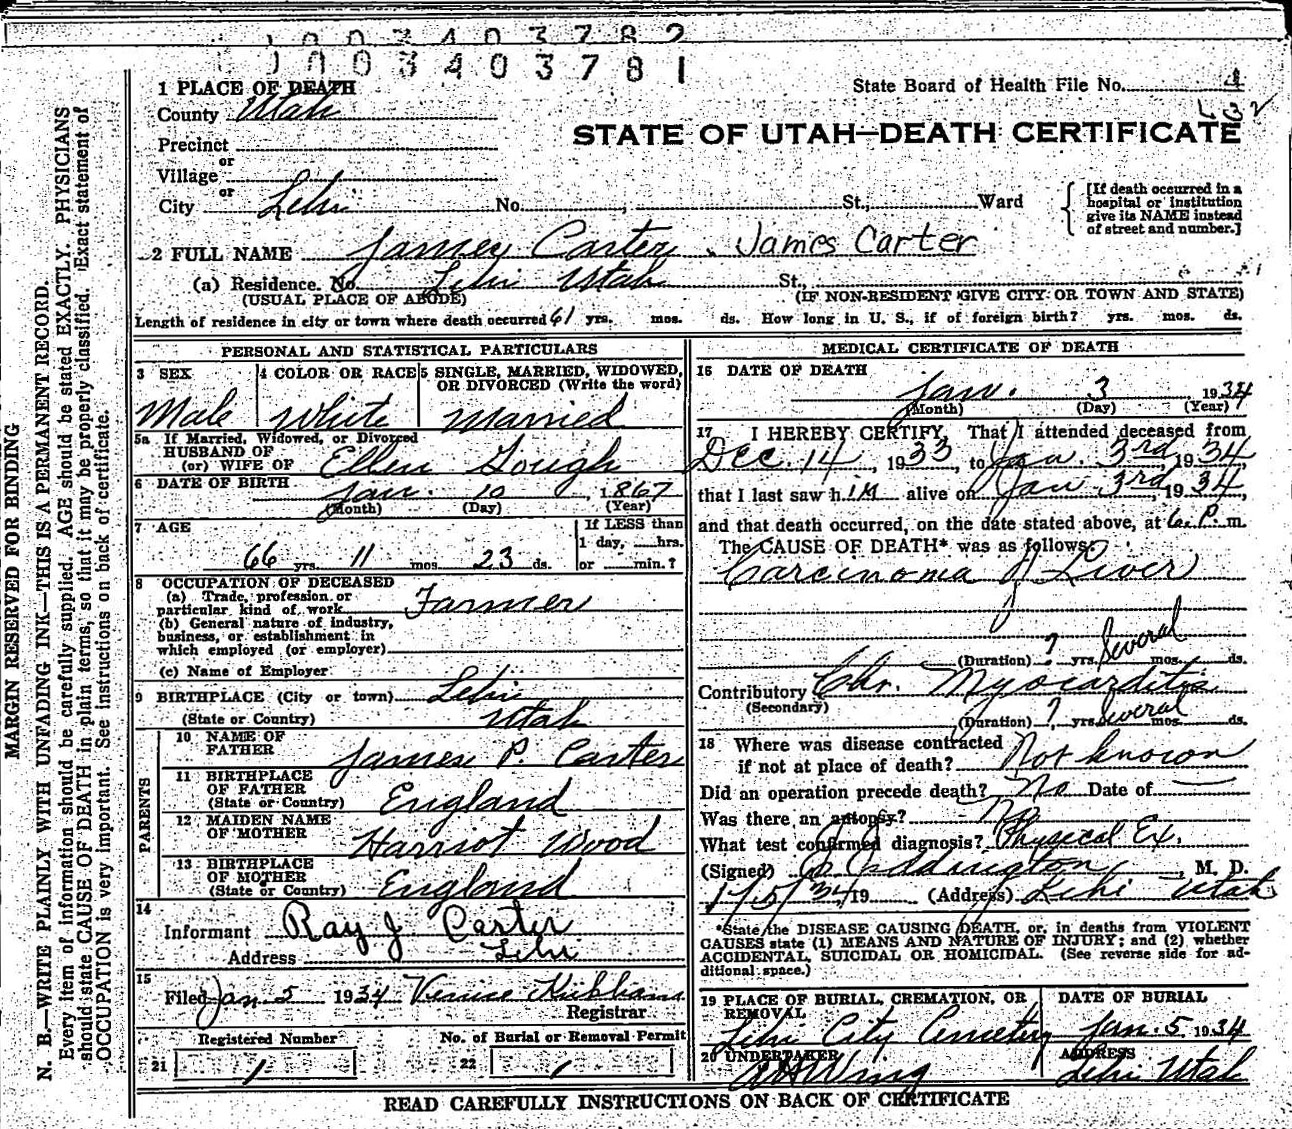 1003403782
1003403781
1 PLACE OF DEATH
State Board of Health File No.
County Utah
STATE OF UTAH—DEATH CERTIFICATE
Precinct
or
Village
or
City Lehi No. , St., Ward
[If death occurred in a
hospital or institution
give its NAME instead
of street and number.]
2 FULL NAME James Carter. James Carter
(a) Residence. No. Lehi Utah St.,
(USUAL PLACE OF ABODE) (IF NON-RESIDENT GIVE CITY OR TOWN AND STATE)
Length of residence in city or town where death occurred 61 yrs. mos. ds. How long in U. S., if of foreign birth? yrs. mos. ds.
PERSONAL AND STATISTICAL PARTICULARS
3 SEX 4 COLOR OR RACE 5 SINGLE, MARRIED, WIDOWED,
OR DIVORCED (Write the word)
Male White Married
5a If Married, Widowed, or Divorced
HUSBAND OF
(or) WIFE OF Ellen Gough
6 DATE OF BIRTH Jan. 10, 1867
(Month) (Day) (Year)
7 AGE If LESS than
1 day, hrs.
66 yrs. 11 mos. 23 ds. or min.?
8 OCCUPATION OF DECEASED
(a) Trade, profession or
particular kind of work Farmer
(b) General nature of industry,
business, or establishment in
which employed (or employer)
(c) Name of Employer
9 BIRTHPLACE (City or town) Lehi
(State or Country) Utah
PARENTS
10 NAME OF
FATHER James P. Carter
11 BIRTHPLACE
OF FATHER
(State or Country) England
12 MAIDEN NAME
OF MOTHER Harriot Wood
13 BIRTHPLACE
OF MOTHER
(State or Country) England
14
Informant Ray J Carter
Address Lehi
15
Filed Jan 5 1934
Registrar
Registered Number No. of Burial or Removal Permit
21 1 22 1
MEDICAL CERTIFICATE OF DEATH
16 DATE OF DEATH
Jan. 3 1934
(Month) (Day) (Year)
17 I HEREBY CERTIFY, That I attended deceased from
Dec. 14, 1933, to Jan. 3rd, 1934,
that I last saw him alive on Jan 3rd, 1934,
and that death occurred, on the date stated above, at 6 P. m.
The CAUSE OF DEATH* was as follows:
Carcinoma of Liver
(Duration) ? yrs. Several mos. ds.
Contributory Chr. Myocarditis
(Secondary)
(Duration) ? yrs. Several mos. ds.
18 Where was disease contracted
if not at place of death? Not known
Did an operation precede death? No Date of
Was there an autopsy? No
What test confirmed diagnosis? Physical Ex.
(Signed) Eddington, M. D.
1/5/34 19 (Address) Lehi Utah
*State the DISEASE CAUSING DEATH, or, in deaths from VIOLENT
CAUSES state (1) MEANS AND NATURE OF INJURY; and (2) whether
ACCIDENTAL, SUICIDAL OR HOMICIDAL. (See reverse side for ad-
ditional space.)
19 PLACE OF BURIAL, CREMATION, OR
REMOVAL DATE OF BURIAL
Lehi City Cemetery Jan. 5 1934
20 UNDERTAKER ADDRESS
Wing Lehi Utah
READ CAREFULLY INSTRUCTIONS ON BACK OF CERTIFICATE
MARGIN RESERVED FOR BINDING
N. B.—WRITE PLAINLY WITH UNFADING INK—THIS IS A PERMANENT RECORD.
Every item of information should be carefully supplied. AGE should be stated EXACTLY. PHYSICIANS
should state CAUSE OF DEATH in plain terms, so that it may be properly classified. Exact statement of
OCCUPATION is very important. See instructions on back of certificate.